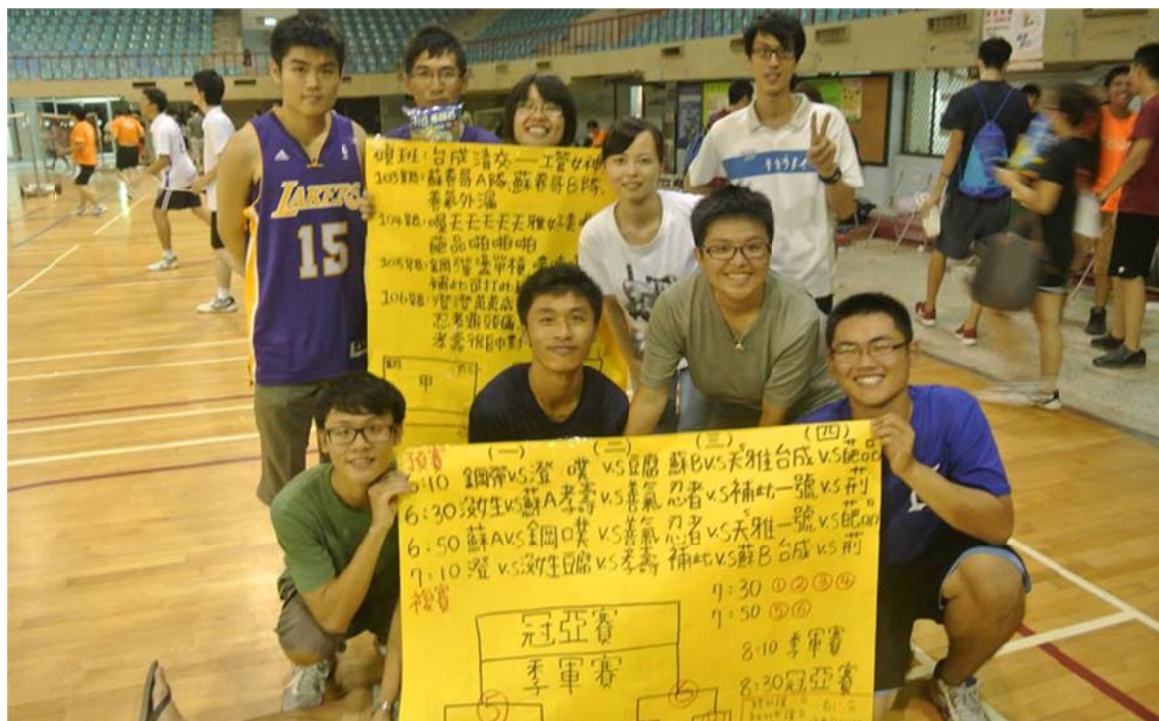 LAKERS
15
嘎班:台成清交一工管女神
103級:蘇春哥A隊、蘇春哥B隊、
善氣外漏
104級:喔天天天天天雅好美
葩品啪啪啪
105級:鋼彈
補此可打此
106級:澄澄
忍者龜頭痛
孝壽很
甲
預賽
(一) (二) (三) (四)
6:10 鋼彈vs澄 噗 vs豆腐 蘇Bvs天雅 台成vs葩品
6:30 沒女生vs蘇A 孝壽vs善氣 忍者vs補此 一號vs刑
6:50 蘇Avs鋼 噗vs善氣 忍者vs天雅 一號vs葩品
7:10 澄vs沒女生 豆腐vs孝壽 補此vs蘇B 台成vs刑
複賽
7:30 ①②③④
7:50 ⑤⑥
8:10 季軍賽
8:30 冠亞賽
冠亞賽
季軍賽
⑤ ⑥